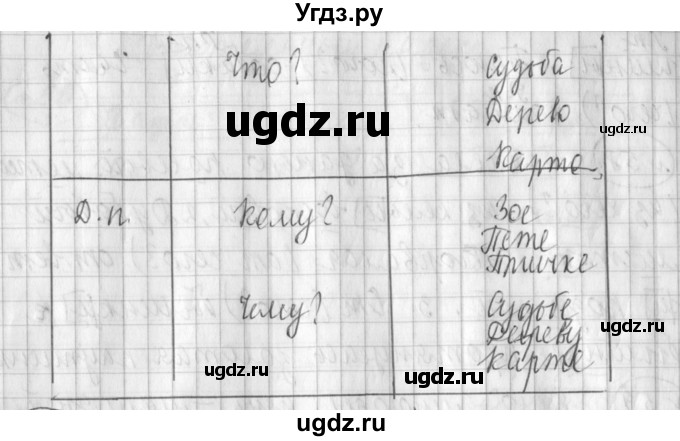 Угдз.ру
Что? Судьба
Дерево
Карта
Д.п. Кому? Зое
Пете
Птичке
Чему? Судьбе
Дереву
Карте
ugdz.ru
ugdz.ru
ugdz.ru
ugdz.ru
ugdz.ru
ugdz.ru